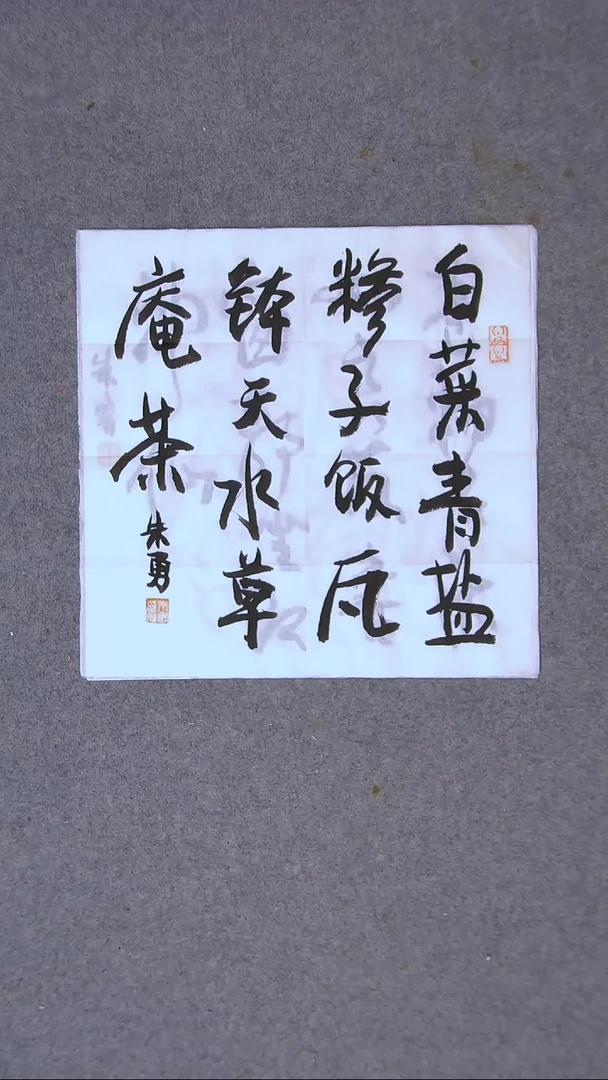 白菜青盐
糁子饭瓦
钵天水草
庵茶
朱勇